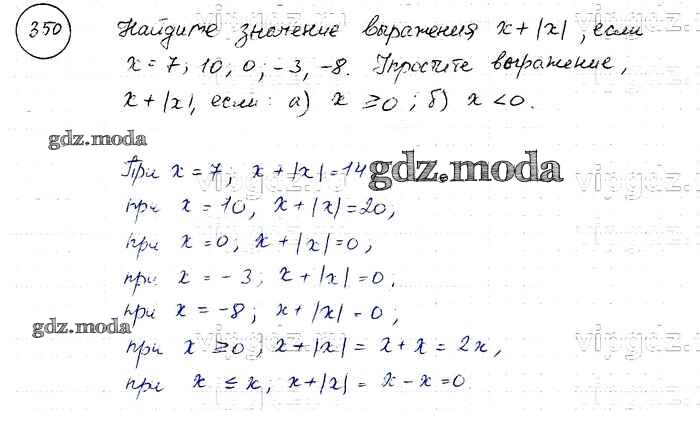 350 Найдите значение выражения x + |x|, если
x = 7; 10; 0; -3; -8. Упростите выражение,
x + |x|, если: а) x ≥ 0; б) x < 0.
gdz.moda
При x = 7; x + |x| = 14
gdz.moda
при x = 10, x + |x| = 20,
при x = 0; x + |x| = 0,
при x = -3; x + |x| = 0.
при x = -8; x + |x| = 0;
gdz.moda
при x ≥ 0; x + |x| = x + x = 2x,
при x ≤ x; x + |x| = x - x = 0.